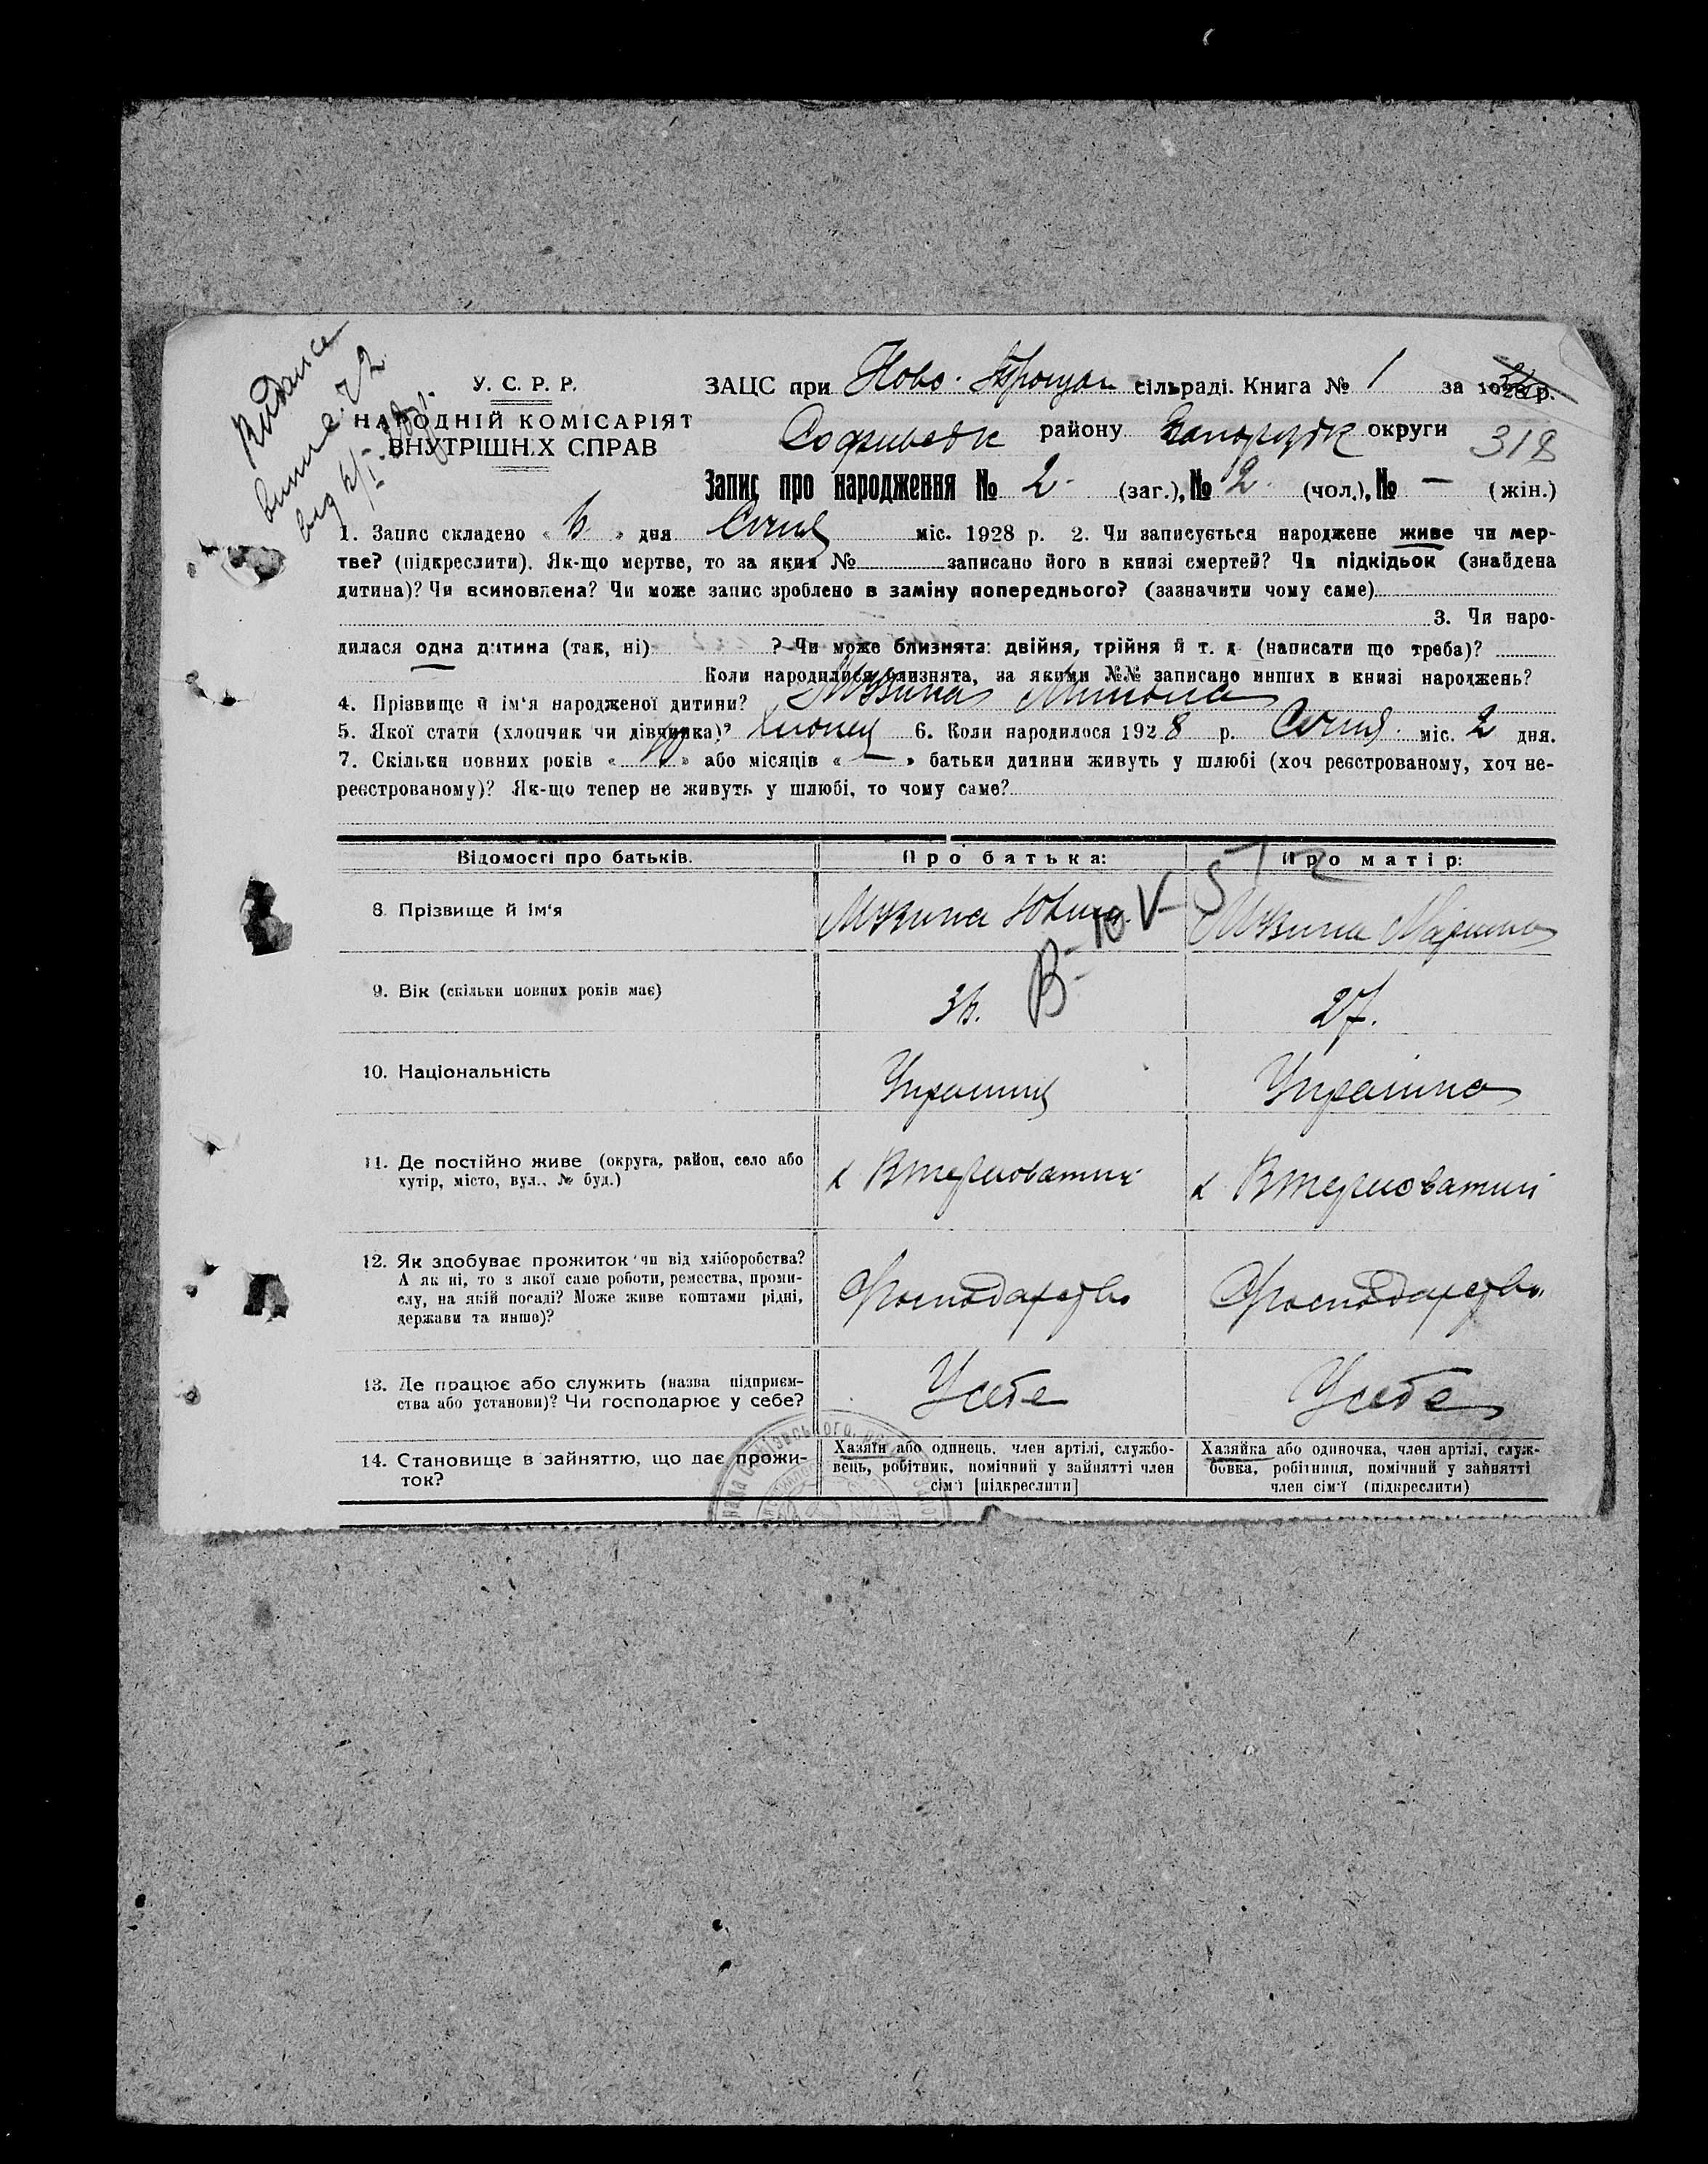 Видане
виписе. 72
від
У. С. Р. Р.
НАРОДНІЙ КОМІСАРІЯТ
ВНУТРІШН.Х СПРАВ
ЗАЦС при Ново- сільраді. Книга № 1 за 1928 р.
району округи 318
Запис про народження № 2 (заг.), № 2. (чол.), № — (жін.)
1. Запис складено « » дня Січня міс. 1928 р. 2. Чи записується народжене живе чи мер-
тве? (підкреслити). Як-що мертве, то за яким № записано його в книзі смертей? Чи підкідьок (знайдена
дитина)? Чи всиновлена? Чи може запис зроблено в заміну попереднього? (зазначити чому саме)
3. Чи наро-
дилася одна дитина (так, ні) ? Чи може близнята: двійня, трійня й т. д (написати що треба)?
Коли народилися близнята, за якими №№ записано инших в книзі народжень?
4. Прізвище й ім'я народженої дитини? Музика Микола
5. Якої стати (хлопчик чи дівчинка)? Хлопец 6. Коли народилося 1928 р. Січня міс. 2 дня.
7. Скільки повних років « » або місяців « — » батьки дитини живуть у шлюбі (хоч реєстрованому, хоч не-
реєстрованому)? Як-що тепер не живуть у шлюбі, то чому саме?
Відомості про батьків. Про батька: Про матір:
8. Прізвище й ім'я Музика Музика Марина
9. Вік (скільки повних років має) 27.
10. Національність Українец Українка
11. Де постійно живе (округа, район, село або
хутір, місто, вул., № буд.)
12. Як здобуває прожиток чи від хліборобства?
А як ні, то з якої саме роботи, ремества, проми-
слу, на якій посаді? Може живе коштами рідні,
держави та инше)? Господарство Господарство
13. Де працює або служить (назва підприєм-
ства або установи)? Чи господарює у себе? Усебе Усебе
14. Становище в зайняттю, що дає прожи-
ток?
Хазяїн або одинець, член артілі, службо-
вець, робітник, помічний у зайнятті член
сім'ї [підкреслити]
Хазяйка або одиночка, член артілі, служ-
бовка, робітниця, помічний у зайнятті
член сім'ї (підкреслити)